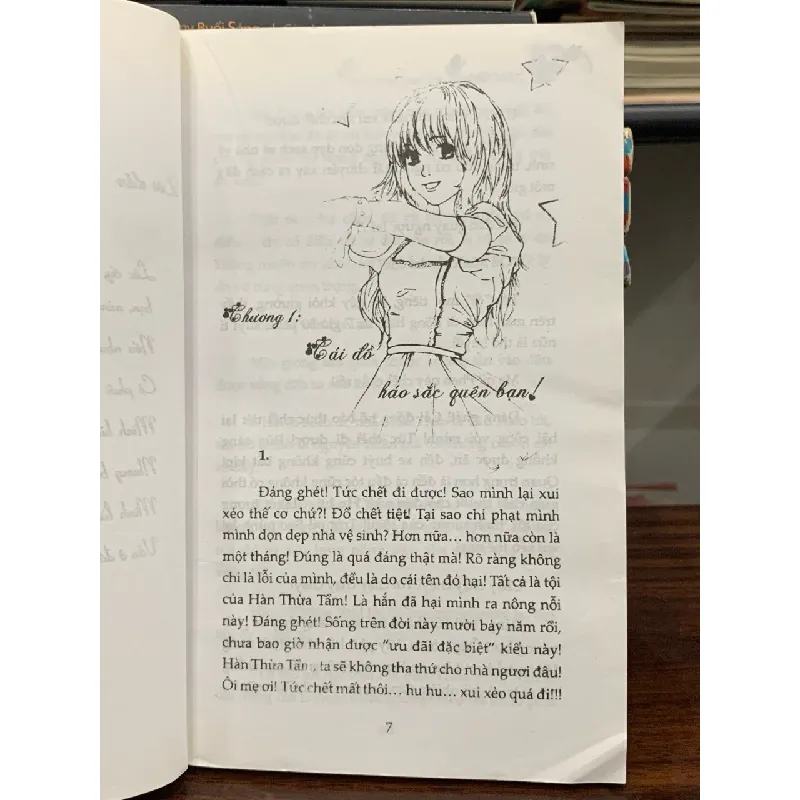 Buổi Sáng
Chương 1:
Cái đồ
háo sắc quên bạn!
1.
Đáng ghét! Tức chết đi được! Sao mình lại xui
xẻo thế cơ chứ?! Đồ chết tiệt! Tại sao chỉ phạt mình
mình dọn dẹp nhà vệ sinh? Hơn nữa... hơn nữa còn là
một tháng! Đúng là quá đáng thật mà! Rõ ràng không
chỉ là lỗi của mình, đều là do cái tên đó hại! Tất cả là tội
của Hàn Thừa Tẩm! Là hắn đã hại mình ra nông nỗi
này! Đáng ghét! Sống trên đời này mười bảy năm rồi,
chưa bao giờ nhận được "ưu đãi đặc biệt" kiểu này!
Hàn Thừa Tẩm, ta sẽ không tha thứ cho nhà ngươi đâu!
Ôi mẹ ơi! Tức chết mất thôi... hu hu... xui xẻo quá đi!!!
7